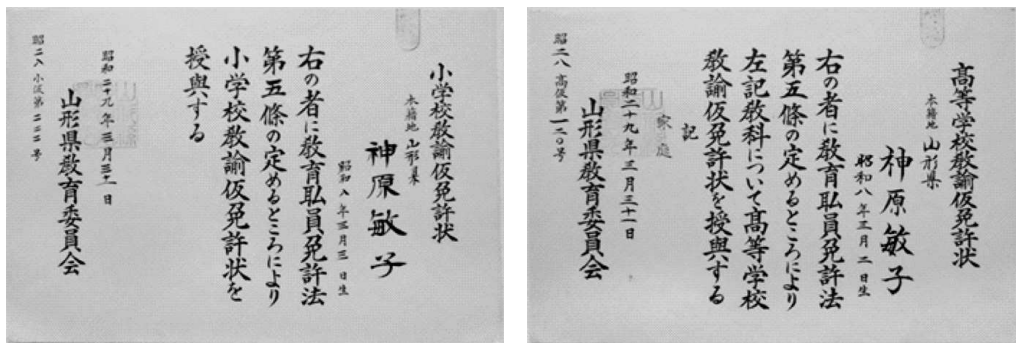 小学校教諭仮免許状
本籍地 山形県
神原敏子
昭和八年三月三日生
右の者に教育職員免許法
第五條の定めるところにより
小学校教諭仮免許状を
授與する
昭和二十九年三月三十一日
山形県教育委員会
昭二八 小仮第二三二号
高等学校教諭仮免許状
本籍地 山形県
神原敏子
昭和八年三月二日生
右の者に教育職員免許法
第五條の定めるところにより
左記教科について高等学校
教諭仮免許状を授與する
記
家庭
昭和二十九年三月三十一日
山形県教育委員会
昭二八 高仮第一二〇号